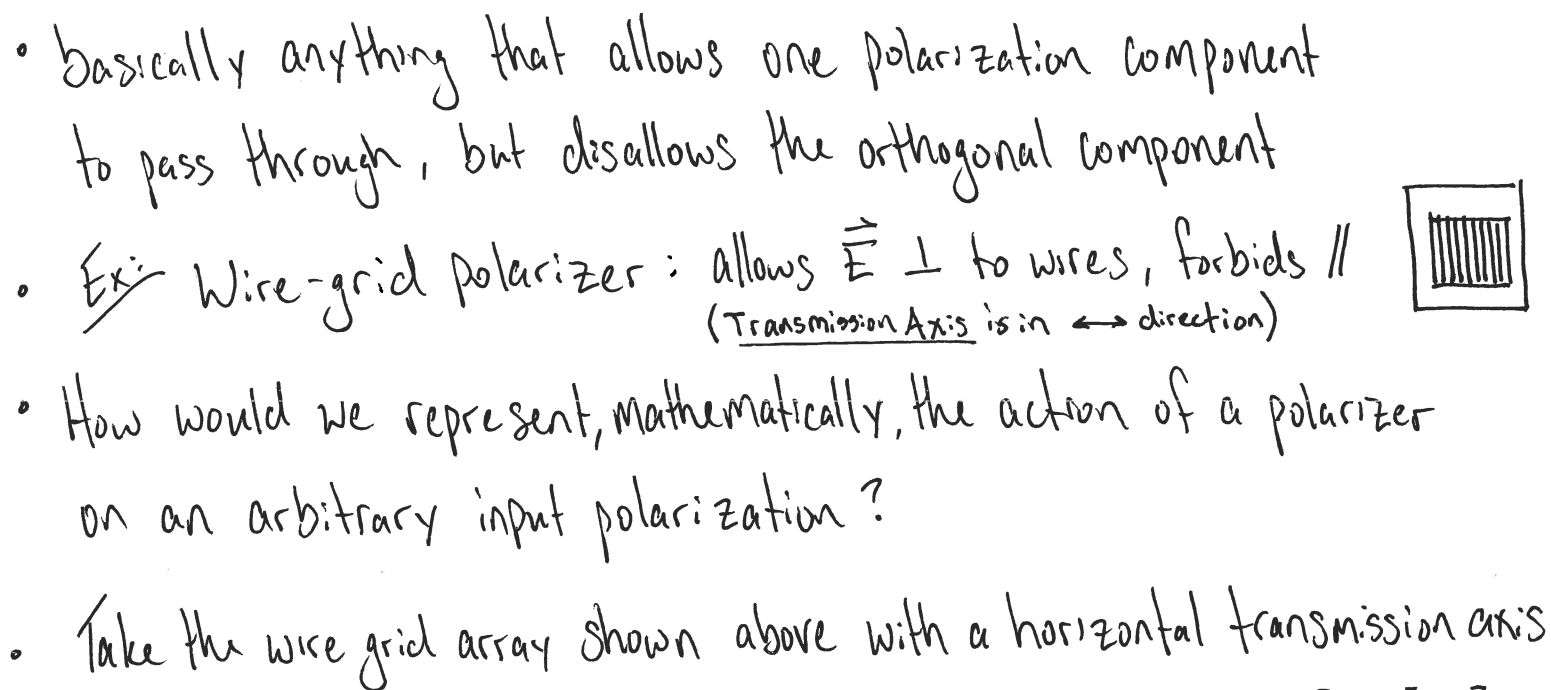 • basically anything that allows one polarization component
to pass through, but disallows the orthogonal component
• Ex: Wire-grid polarizer: allows E⃗ ⊥ to wires, forbids //
(Transmission Axis is in ↔ direction)
• How would we represent, mathematically, the action of a polarizer
on an arbitrary input polarization?
• Take the wire grid array shown above with a horizontal transmission axis